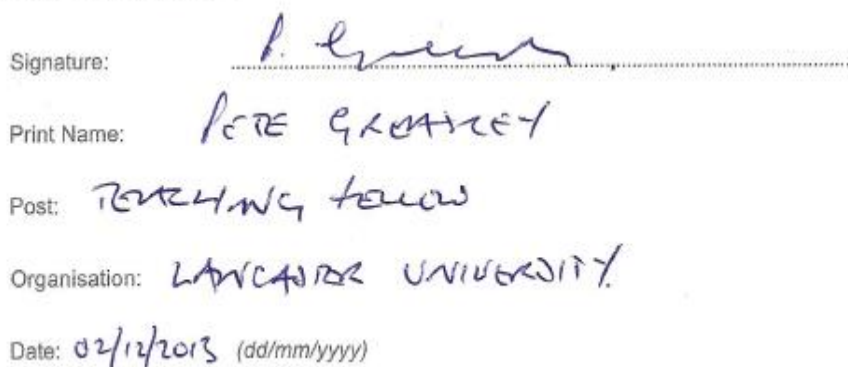 Signature: P. Greasley
Print Name: PETE GREASLEY
Post: TEACHING FELLOW
Organisation: LANCASTER UNIVERSITY
Date: 02/12/2013 (dd/mm/yyyy)